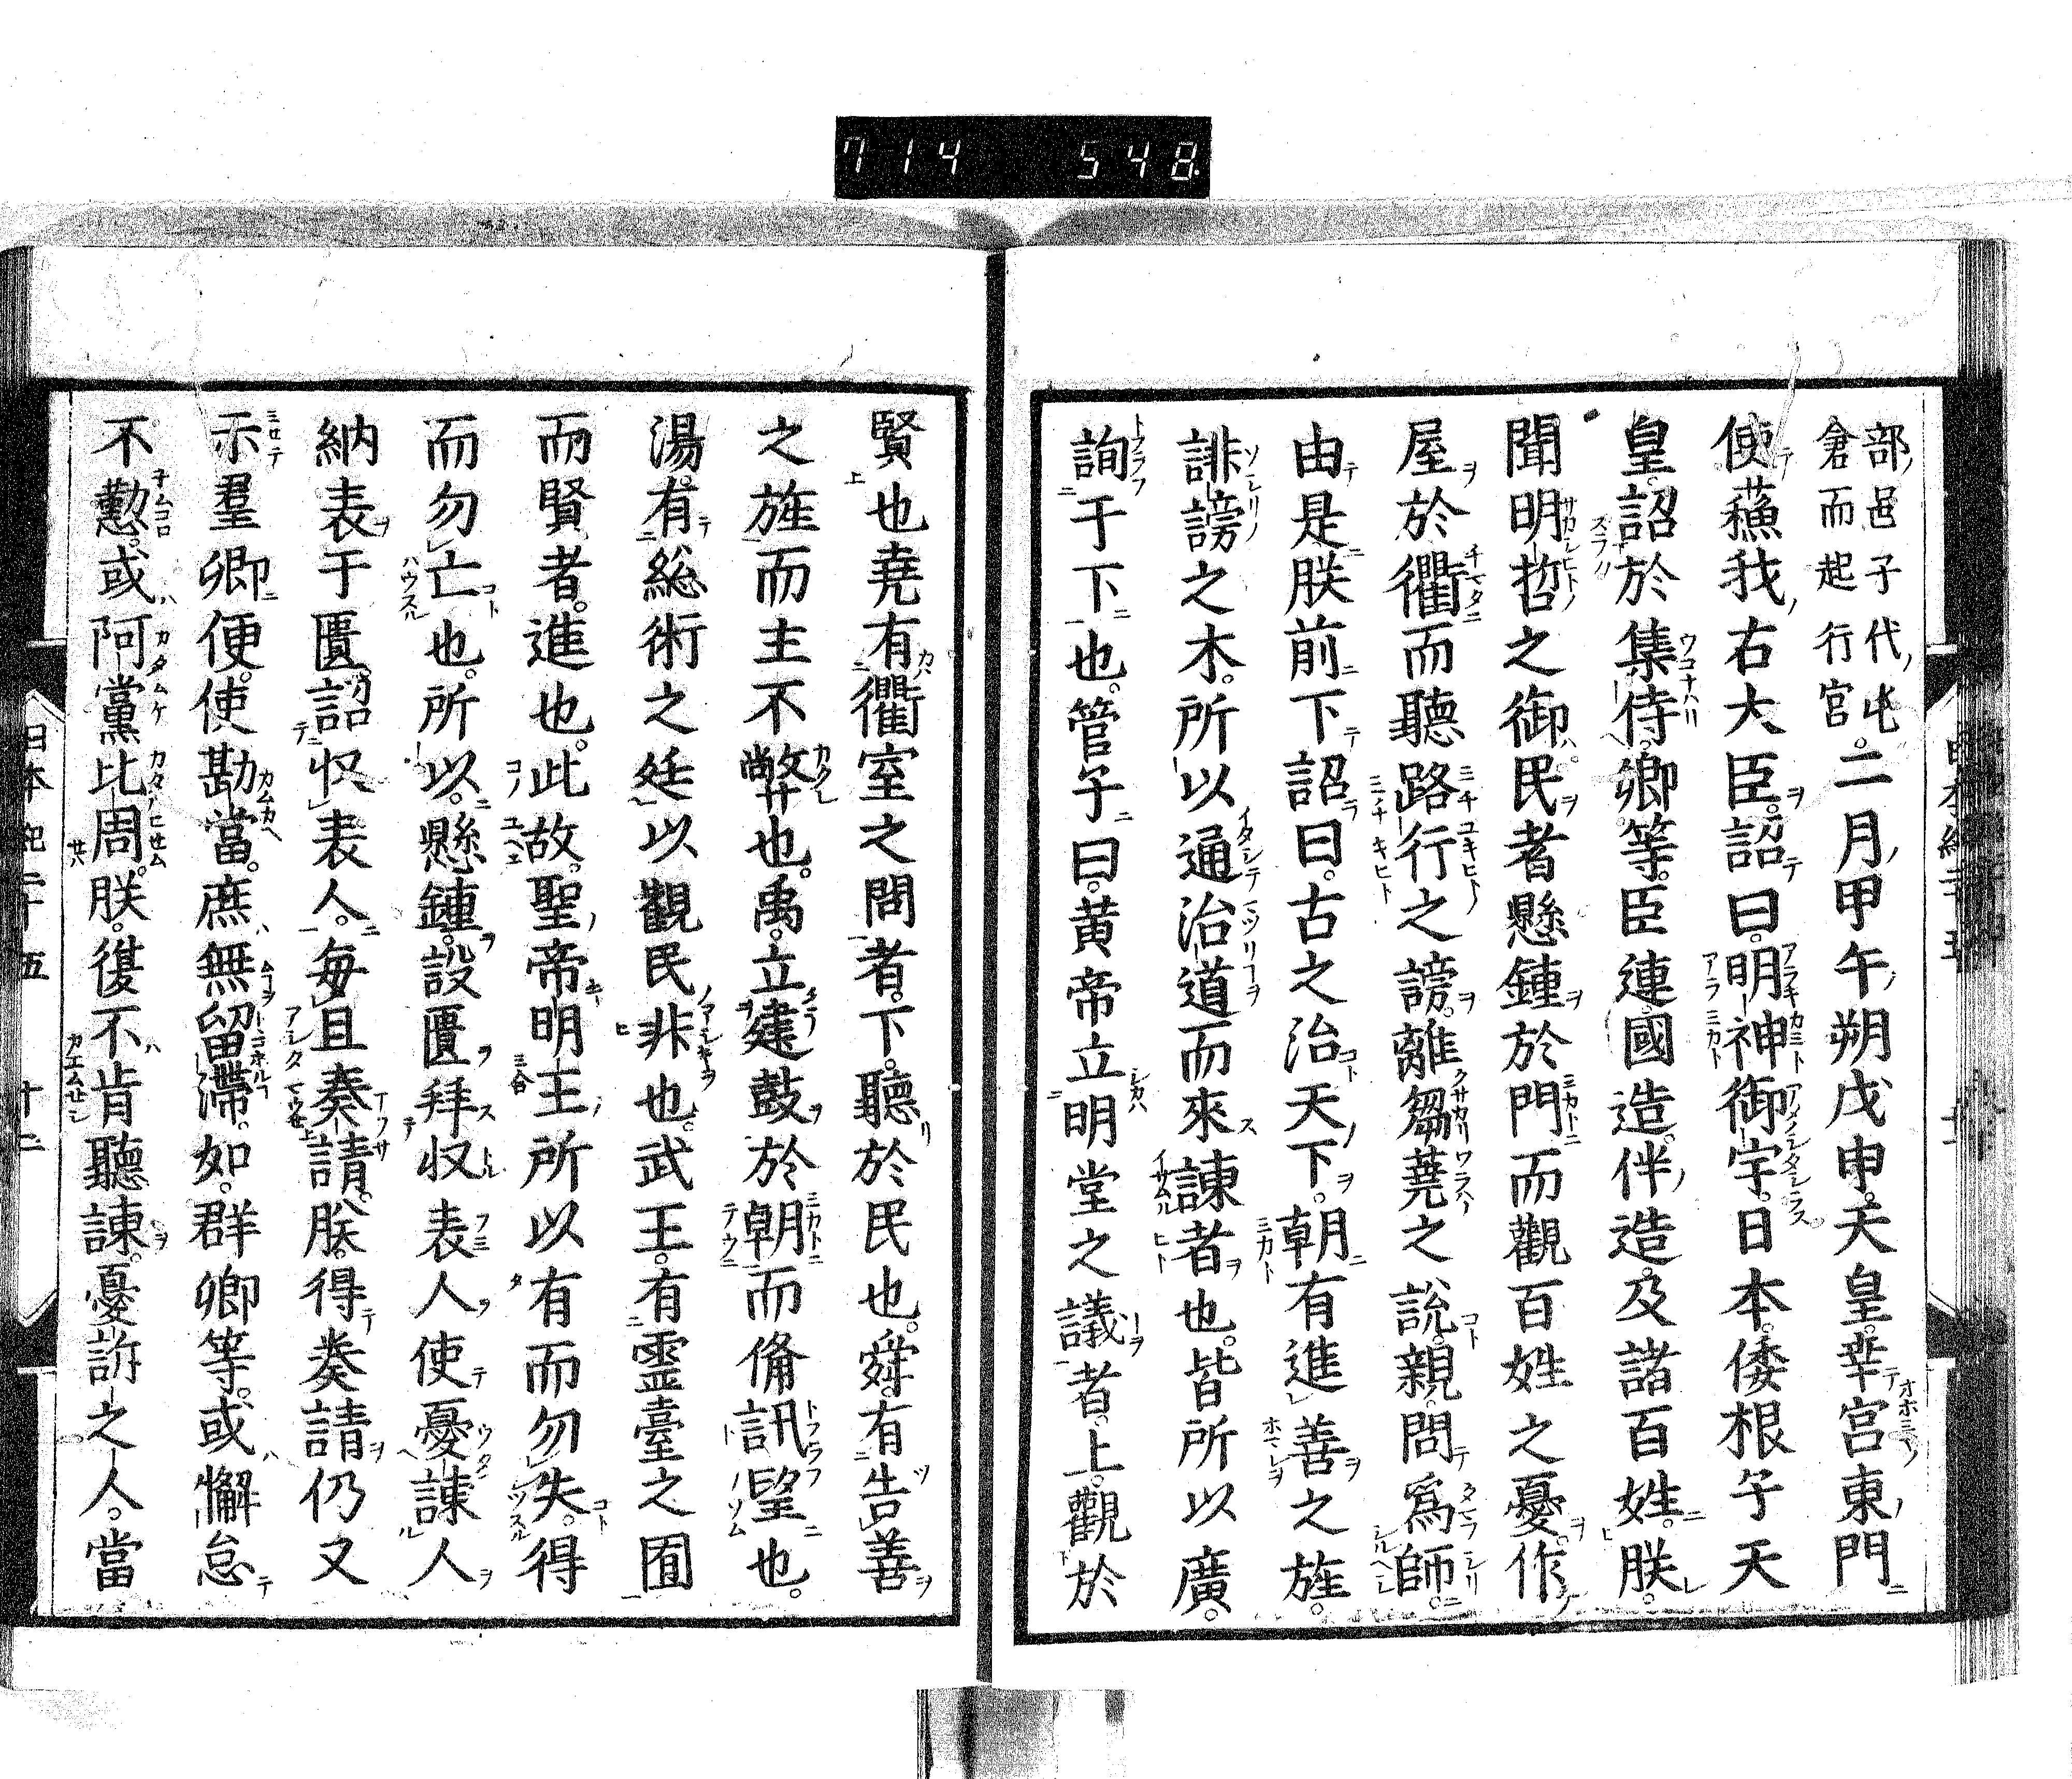 714 548
部邑子代屯
倉而起行宮。二月甲午朔戊申。天皇。幸宮東門
使蘓我右大臣。詔曰。明神御宇。日本。倭根子天
皇。詔於集侍。卿等。臣連國造。伴造。及諸百姓。朕。
聞明哲之御民者懸鍾於門而觀百姓之憂。作
屋於衢而聽路行之謗。雖蒭蕘之説。親問爲師。
由是朕前下詔曰。古之治天下。朝有進善之旌。
誹謗之木。所以通治道而來諫者也。皆所以廣。
詢于下也。管子曰。黄帝立明堂之議者。上。觀於
賢也堯有衢室之問者。下。聽於民也。舜。有告善
之旌而主不弊也。禹。立建鼓於朝而備訊望也。
湯。有総術之廷以觀民非也。武王。有霊臺之囿
而賢者。進也。此故。聖帝明王所以有而勿失。得
而勿亡也。所以。懸鍾。設匱拜収表人使憂諫人
納表于匱。詔収表人。毎旦奏請。朕。得奏請仍又
示羣卿便。使勘當。庶無留滞。如。群卿等。或懈怠
不懃。或阿黨比周。朕。復不肯聽諫。憂訴之人。當
日本紀二十五 十二